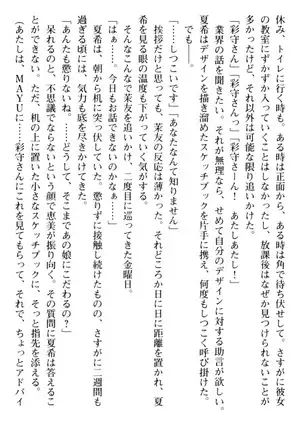 休み、トイレに行くとき。ある時は正面から、ある時は角で待ち伏せして。さすがに彼女
の教室にずかずか入っていくことはしなかったし、放課後はなぜか見つからないことが
多かったけど、それ以外は可能な限り追いかけた。
「彩守さん」「彩守さーん！」「彩守さーん！　あたしあたし！」
業界の話を聞きたい。それが無理なら、せめて自分のデザインに対する助言が欲しい。
夏希はデザインを描き溜めたスケッチブックを片手に携え、何度もしつこく呼び掛けた。
でも――。
「……しつこいです」「あなたなんて知りません」
挨拶だけと思っても、茉友の反応は薄かった。それどころか日に日に距離を置かれ、夏
希を見る眼の温度も下がっていく気がする。
そんなこんなで茉友を追いかけ、二度目に巡ってきた金曜日。
「はぁ～……。今日もお話できないのかなぁ……」
夏希は、朝から机に突っ伏していた。懲りずに接触し続けたものの、さすがに二週間も
過ぎる頃には、気力も底を尽きかけていた。
「あんたも懲りないね……どうして、そこまであの娘にこだわるの？」
呆れるのを通り越して不思議でならないという顔で恵美が尋ねる。その質問に夏希は答えるこ
とができない。ただ、机の上に置いた小さなスケッチブックに、そっと指先を添える。
（あたしは、MAYUに……彩守さんにこれを見てもらって、それで、ちょっとアドバイ